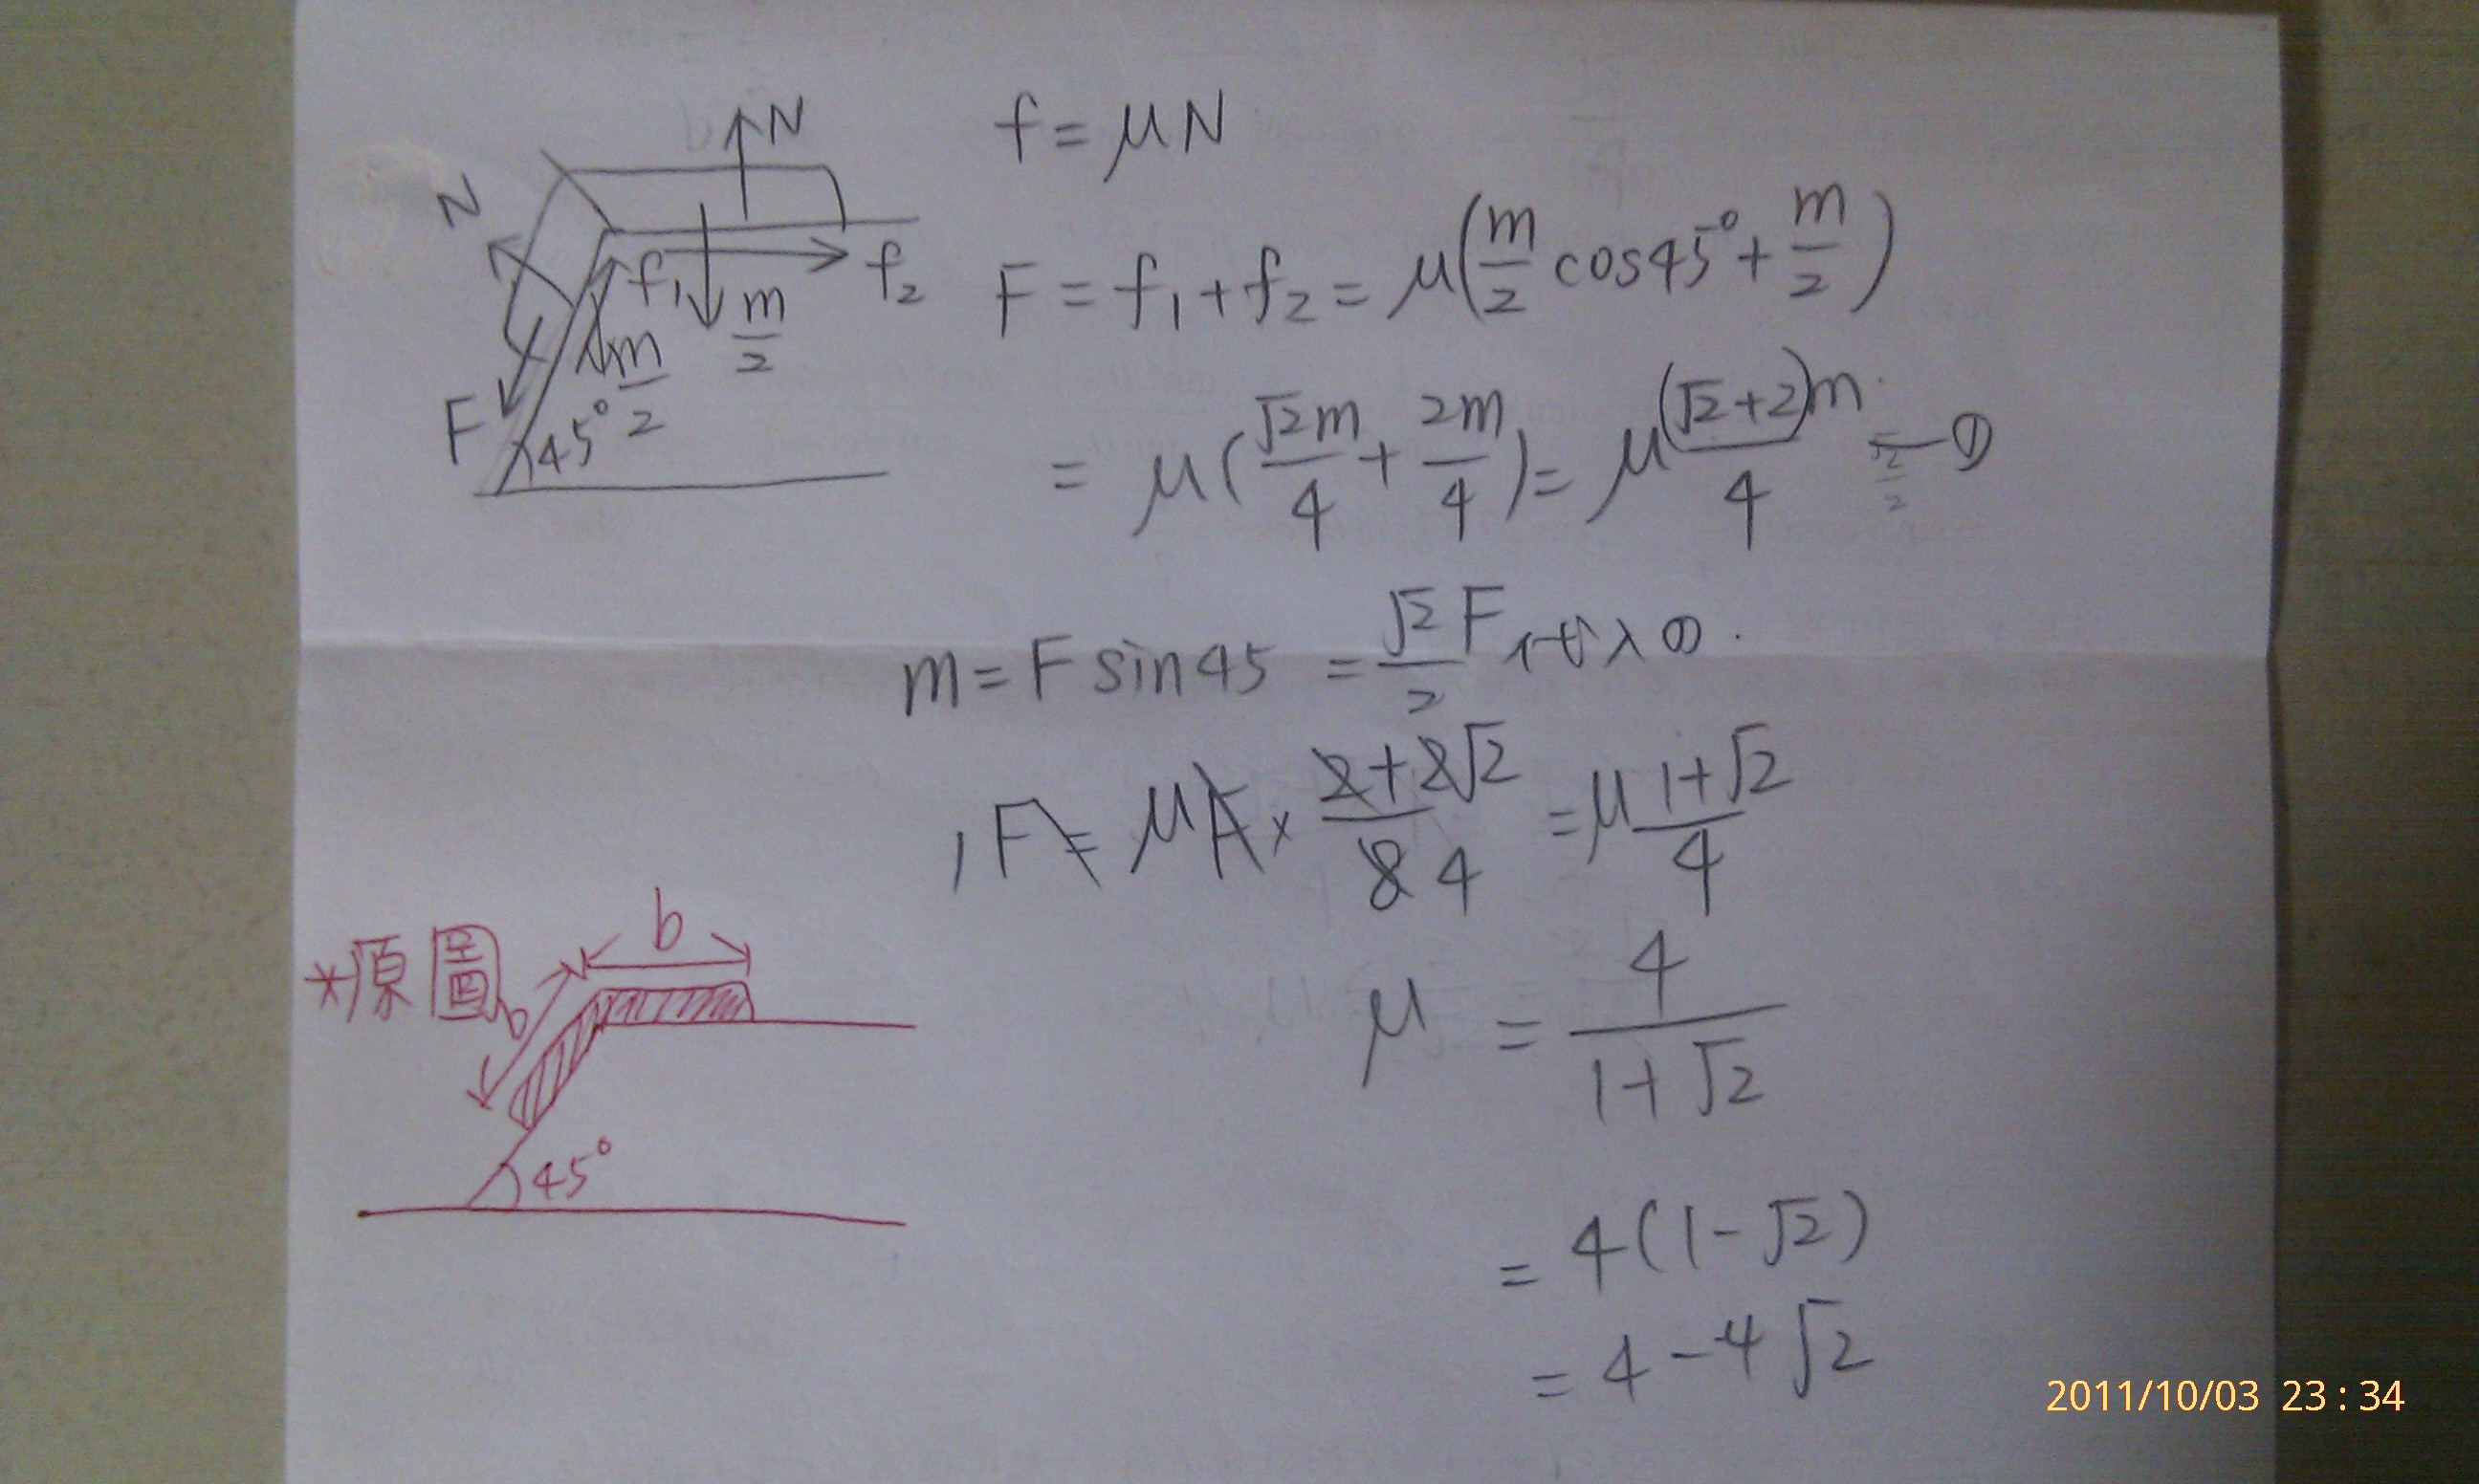 N
N
f₁
f₂
m/2
m/2
F
45°
f = μN
F = f₁ + f₂ = μ(m/2 cos45° + m/2)
= μ(√2m/4 + 2m/4) = μ(√2+2)m/4 —①
m = F sin45 = √2/2 F 代入①.
F = μF × 2+2√2/8 4 = μ 1+√2/4
μ = 4/1+√2
= 4(1-√2)
= 4-4√2
*原圖
b
b
45°
2011/10/03 23:34